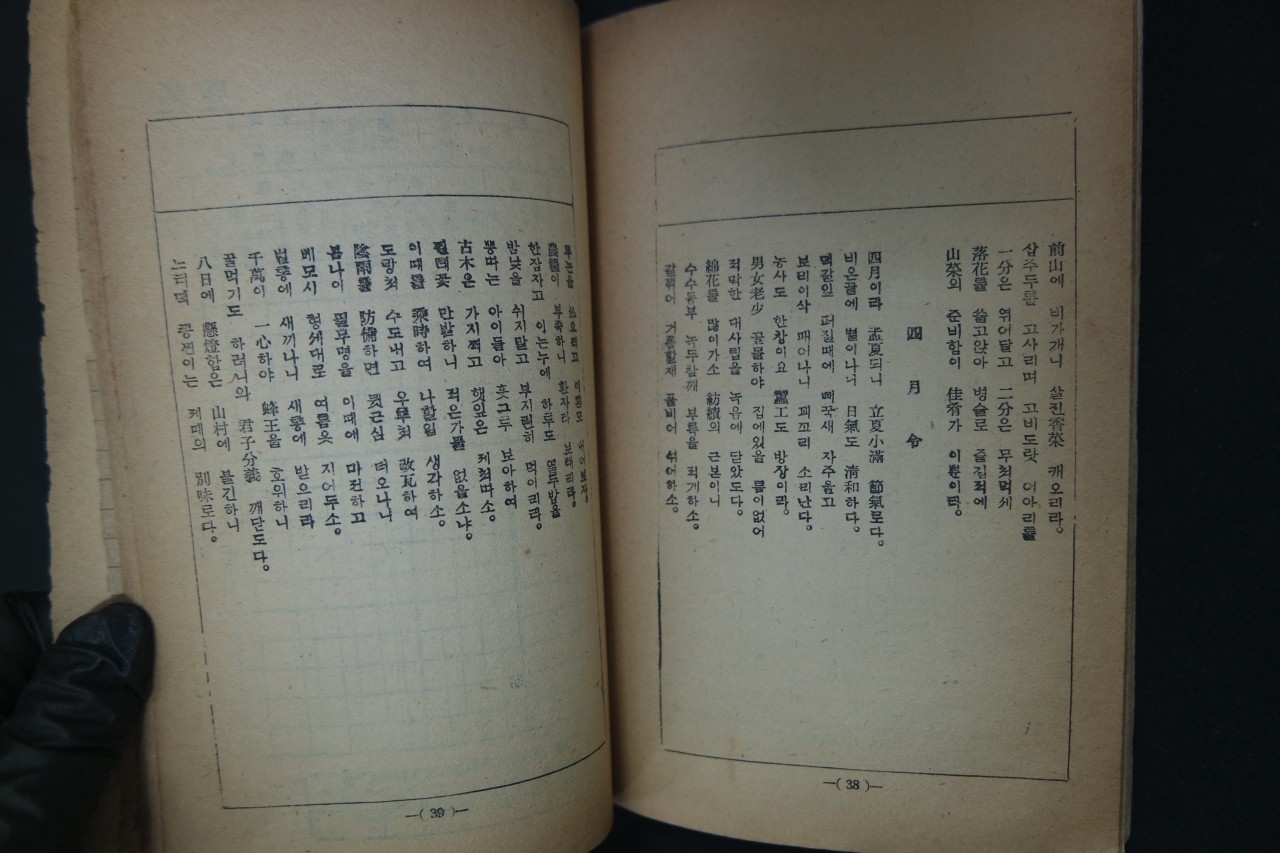 前山에 비가개니 살진香菜 캐오리라。
삽주두릅 고사리며 고비도랏 어아리를
一分은 엮어달고 二分은 무쳐먹세
落花를 쓸고앉아 병술로 즐길적에
山菜의 준비함이 佳肴가 이뿐이라。
四月令
四月이라 孟夏되니 立夏小滿 節氣로다。
비온끝에 볕이나니 日氣도 淸和하다。
떡갈잎 퍼질때에 뻐꾹새 자주울고
보리이삭 패어나니 꾀꼬리 소리난다。
농사도 한창이요 蠶工도 방장이라。
男女老少 골몰하야 집에있을 틈이없어
적막한 대사립을 녹음에 닫았도다。
綿花를 많이가소 紡績의 근본이니
수수동부 녹두참깨 부룩을 적게하소。
갈꺾어 거름할제 풀비어 섞어하소。
—(38)—
農糧이 부족하니 환자타 보태리라。
한잠자고 이는누에 하루도 열두밥을
밤낮을 쉬지말고 부지런히 먹이리라。
뽕따는 아이들아 훗그루 보아하여
古木은 가지찍고 햇잎은 제쳐따소。
찔레꽃 만발하니 적은가믈 없을소냐。
이때를 乘時하여 나할일 생각하소。
도랑쳐 수도내고 우루쳐 改瓦하여
陰雨를 防備하면 뒷근심 더오나니
봄나이 필무명을 이때에 마전하고
베모시 형세대로 여름옷 지어두소。
벌통에 새끼나니 새통에 받으리라
千萬이 一心하야 蜂王을 호위하니
꿀먹기도 하려니와 君子分義 깨닫도다。
八日에 懸燈함은 山村에 불긴하니
느티떡 콩찐이는 제때의 別味로다。
—(39)—